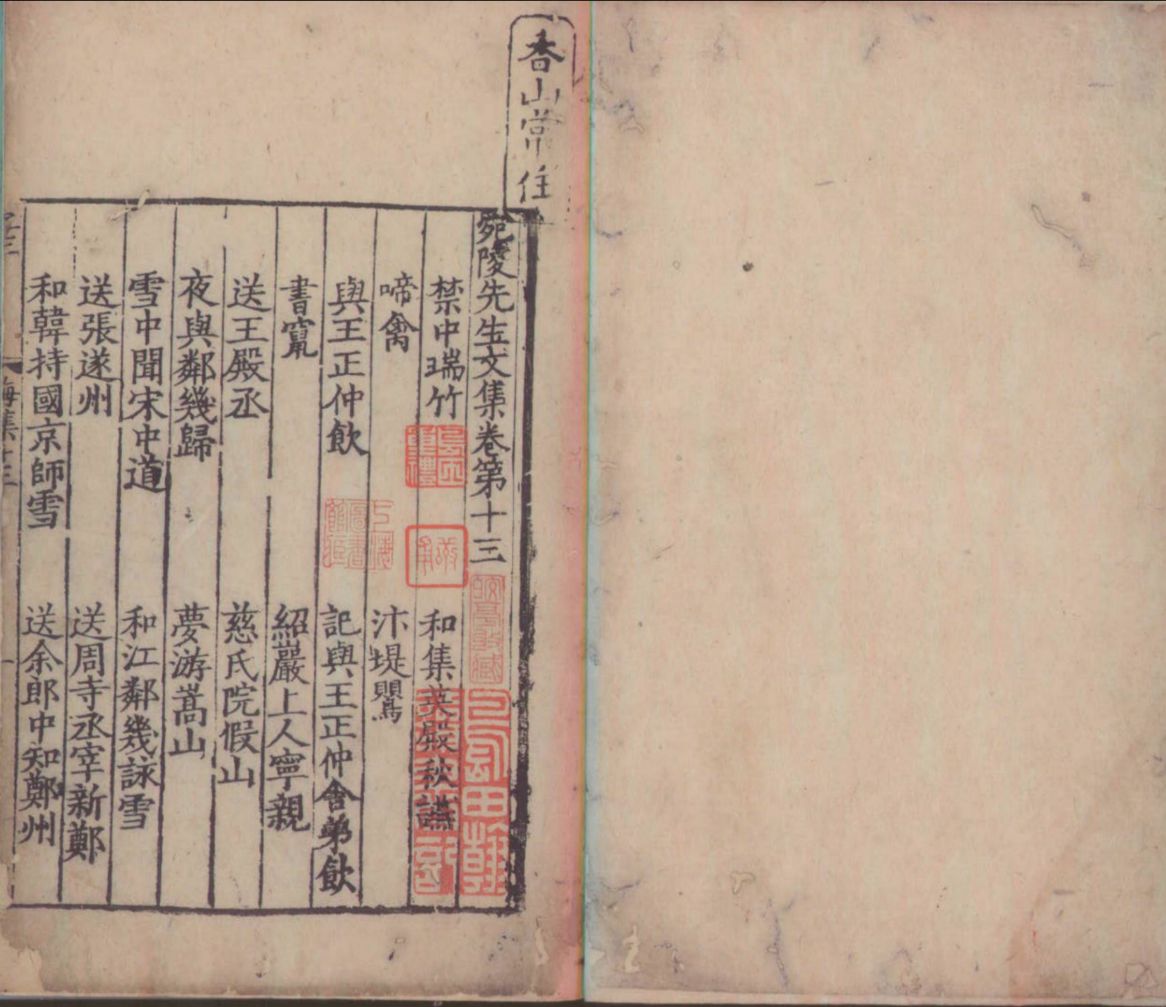 香山常住
宛陵先生文集卷第十三
禁中瑞竹 和集英殿秋讌
啼禽 汴堤鸎
與王正仲飲 記與王正仲舍弟飲
書竄 紹巖上人寧親
送王殿丞 慈氏院假山
夜與鄰幾歸 夢游嵩山
雪中聞宋中道 和江鄰幾詠雪
送張遂州 送周寺丞宰新鄭
和韓持國京師雪 送余郎中知鄭州
梅集十三